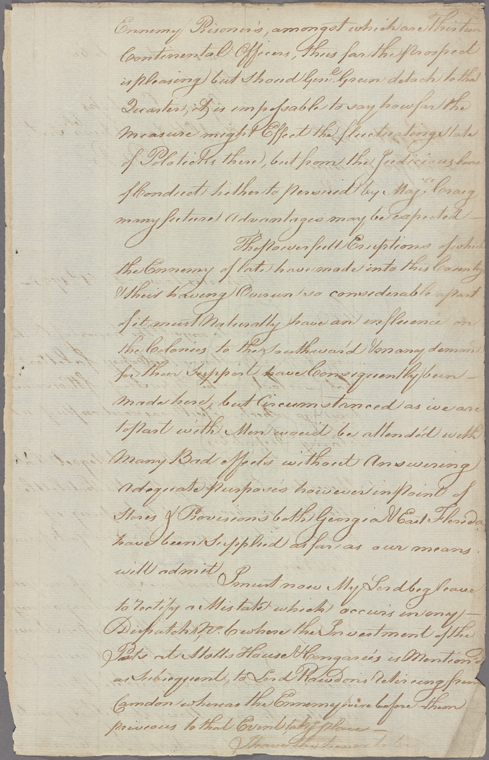 Ennemy Prisoners, amongst which are Thirteen
Continental Officers, thus far the Prospect
is pleasing but should Genl. Green detach to that
Quarter, it is impossible to say how far the
measure might Effect the fluctuating State
of Politicks there, but from the Judicious line
of Conduct hetherto persued by Majr. Craig
many future Advantages may be expected —
The powerfull Eruptions of which
the Ennemy of late have made into this Country
& their having Overun so considerable a part
of it must Naturally have an influence on
the Colonies to the southward & many demands
for their Support have Consequently been —
made here, but Circumstanced as we are
to part with Men would be attended with
Many Bad effects without Answering
Adequate purposes however in point of
Stores & Provisions both Georgia & East Florida
have been Supplied as far as our means
will admit
I must now My Lord beg leave
to rectify a Mistake which occurs in my —
Dispatch No. 6 where the Investment of the
Posts at Motts House & Congarees is Mentiond
as Subsequent, to Lord Rawdon's retiring from
Camdon whereas the Ennemy were before them
previous to that Event takg. place —
I have the honor to be